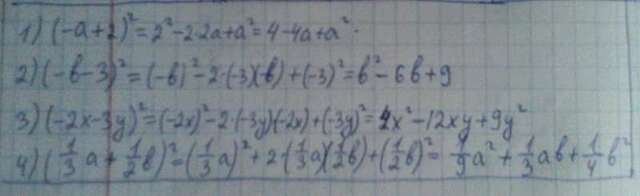 1) (-a+2)²=2²-2·2a+a²=4-4a+a².
2) (-b-3)²=(-b)²-2·(-3)(-b)+(-3)²=b²-6b+9
3) (-2x-3y)²=(-2x)²-2·(-3y)(-2x)+(-3y)²=4x²-12xy+9y²
4) (1/3a+1/2b)²=(1/3a)²+2·(1/3a)(1/2b)+(1/2b)²=1/9a²+1/3ab+1/4b²